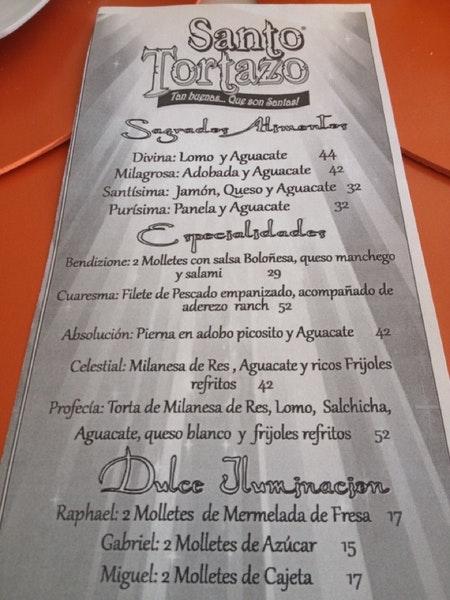 Santo
Tortazo
Tan buenas... Que son Santas!
Sagrados Alimentos
Divina: Lomo y Aguacate 44
Milagrosa: Adobada y Aguacate 42
Santísima: Jamón, Queso y Aguacate 32
Purísima: Panela y Aguacate 32
Especialidades
Bendizione: 2 Molletes con salsa Boloñesa, queso manchego
y salami 29
Cuaresma: Filete de Pescado empanizado, acompañado de
aderezo ranch 52
Absolución: Pierna en adobo picosito y Aguacate 42
Celestial: Milanesa de Res , Aguacate y ricos Frijoles
refritos 42
Profecía: Torta de Milanesa de Res, Lomo, Salchicha,
Aguacate, queso blanco y frijoles refritos 52
Dulce Iluminacion
Raphael: 2 Molletes de Mermelada de Fresa 17
Gabriel: 2 Molletes de Azúcar 15
Miguel: 2 Molletes de Cajeta 17